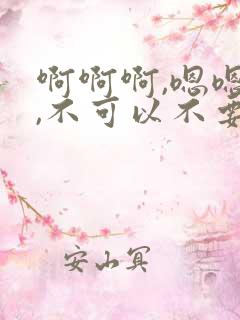 啊啊啊,嗯嗯
,不可以不要
安山冥